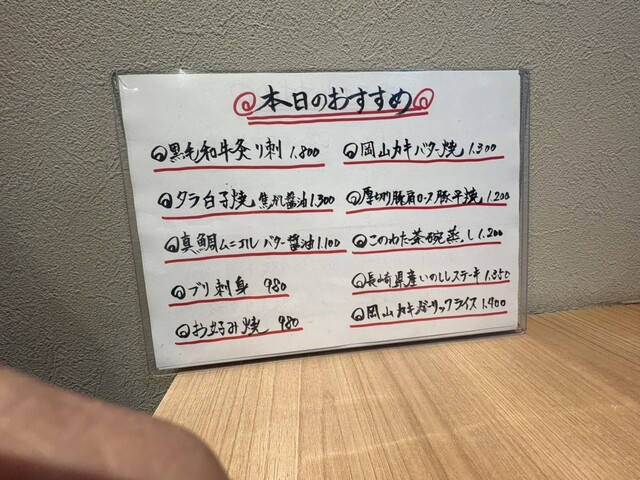 本日のおすすめ
黒毛和牛炙り刺 1.800
タラ白子焼 焦がし醤油 1.300
真鯛ムニエル バター醤油 1.100
ブリ刺身 980
お好み焼 980
岡山カキバター焼 1.300
厚切り豚肩ロース豚平焼 1.200
このわた茶碗蒸し 1.200
長崎県産いのししステーキ 1.350
岡山カキガーリックライス 1.400